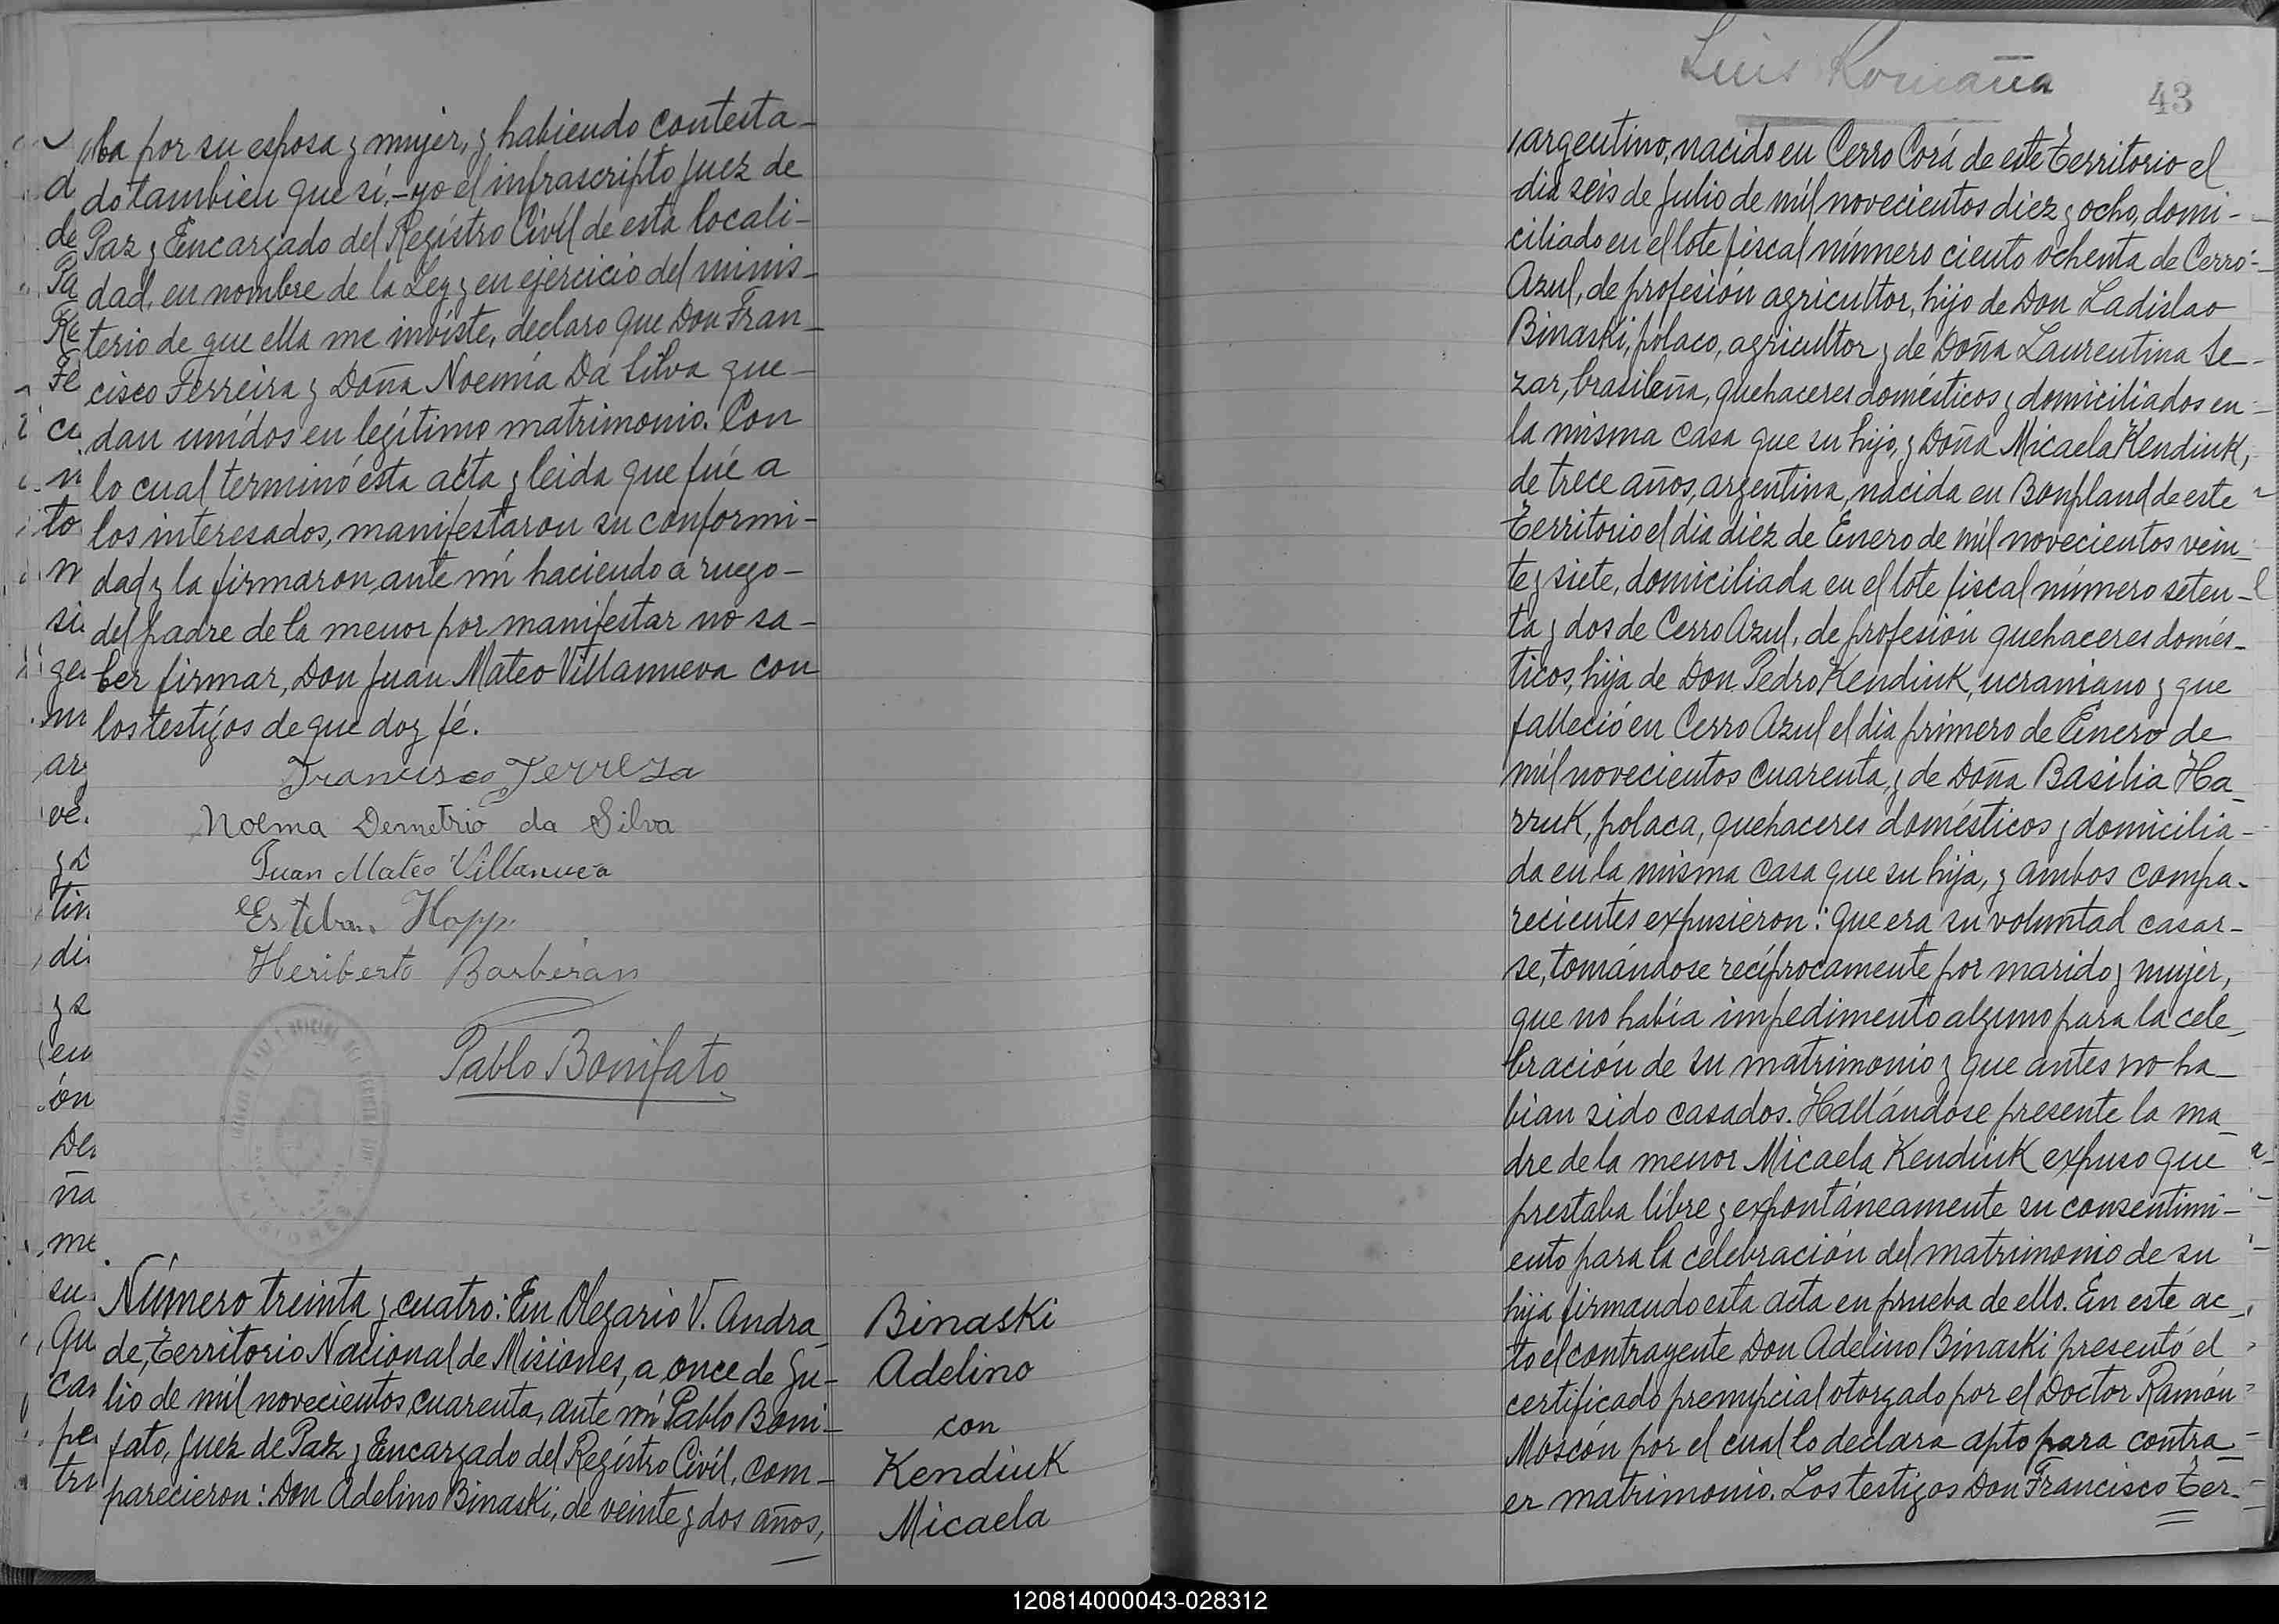 ba por su esposa y mujer, y habiendo contesta-
do tambien que sí,- yo el infrascripto Juez de
Paz y Encargado del Registro Civil de esta locali-
dad, en nombre de la Ley y en ejercicio del minis-
terio de que ella me inviste, declaro que Don Fran-
cisco Ferreira y Doña Noemia Da Silva que-
dan unidos en legítimo matrimonio. Con
lo cual terminó esta acta y leida que fué a
los interesados, manifestaron su conformi-
dad y la firmaron ante mí haciendo a ruego-
del padre de la menor por manifestar no sa-
ber firmar, Don Juan Mateo Villanueva con
los testigos de que doy fé.
Francisco Ferreza
Noema Demetrio da Silva
Juan Mateo Villanueva
Esteban Hopp
Heriberto Barberán
Pablo Bonifato
Número treinta y cuatro: En Olegario V. Andra-
de, Territorio Nacional de Misiones, a once de Ju-
lio de mil novecientos cuarenta, ante mí Pablo Boni-
fato, Juez de Paz y Encargado del Registro Civil, com-
parecieron: Don Adelino Binaski, de veinte y dos años,
Binaski
Adelino
con
Kendiuk
Micaela
Luis Romaña
43
argentino, nacido en Cerro Corá de este Territorio el
dia seis de Julio de mil novecientos diez y ocho, domi-
ciliado en el lote fiscal número ciento ochenta de Cerro-
Azul, de profesión agricultor, hijo de Don Ladislao
Binaski, polaco, agricultor y de Doña Laurentina Se-
zar, brasileña, quehaceres domésticos y domiciliados en
la misma casa que su hijo, y Doña Micaela Kendiuk,
de trece años, argentina, nacida en Bonpland de este
Territorio el dia diez de Enero de mil novecientos vein-
te y siete, domiciliada en el lote fiscal número seten-
ta y dos de Cerro Azul, de profesión quehaceres domés-
ticos, hija de Don Pedro Kendiuk, ucraniano y que
falleció en Cerro Azul el dia primero de Enero de
mil novecientos cuarenta, y de Doña Basilia Ha-
rruk, polaca, quehaceres domésticos y domicilia-
da en la misma casa que su hija, y ambos compa-
recientes expusieron: que era su voluntad casar-
se, tomándose recíprocamente por marido y mujer,
que no había impedimento alguno para la cele-
bración de su matrimonio y que antes no ha-
bian sido casados. Hallándose presente la ma-
dre de la menor Micaela Kendiuk expuso que
prestaba libre y expontáneamente su consentimi-
ento para la celebración del matrimonio de su
hija firmando esta acta en prueba de ello. En este ac-
to el contrayente Don Adelino Binaski presentó el
certificado prenupcial otorgado por el Doctor Ramón
Moscón por el cual lo declara apto para contra-
er matrimonio. Los testigos Don Francisco Ter-
120814000043-028312